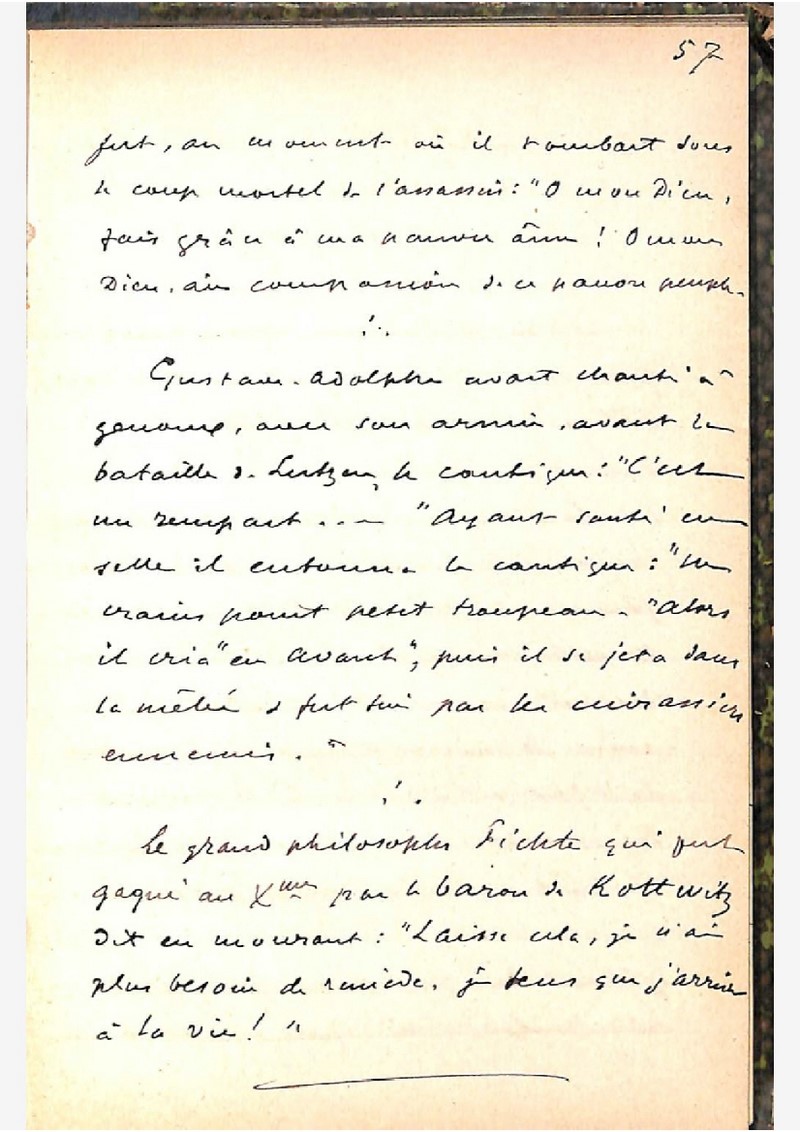 57
fut, au moment où il tombait sous
le coup mortel de l'assassin: "O mon Dieu,
fais grâce à ma pauvre âme ! O mon
Dieu, aie compassion de ce pauvre peuple.
Gustave-Adolphe avait chanté à
genoux, avec son armée, avant la
bataille de Lutzen, le cantique: "C'est
un rempart ... " Ayant sauté en
selle il entonna le cantique : "Ne
crains point petit troupeau. "Alors
il cria "en avant", puis il se jeta dans
la mêlée & fut tué par les cuirassiers
ennemis. "
Le grand philosophe Fichte qui fut
gagné au Xme par le baron de Kottwitz
dit en mourant : "Laisse cela, je n'ai
plus besoin de remède, je sens que j'arrive
à la vie ! "